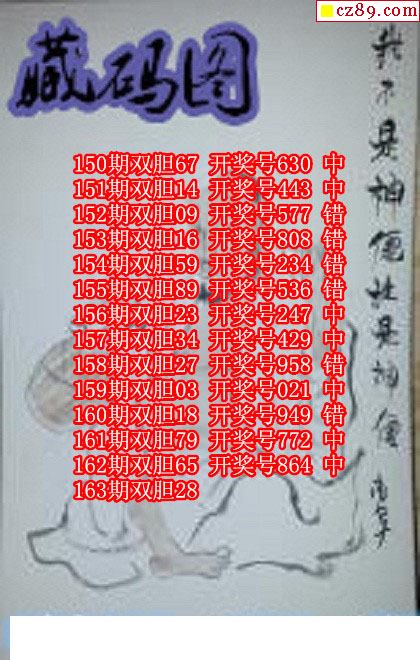 cz89.com
藏码图
我不是神但比是神僊
150期双胆67 开奖号630 中
151期双胆14 开奖号443 中
152期双胆09 开奖号577 错
153期双胆16 开奖号808 错
154期双胆59 开奖号234 错
155期双胆89 开奖号536 错
156期双胆23 开奖号247 中
157期双胆34 开奖号429 中
158期双胆27 开奖号958 错
159期双胆03 开奖号021 中
160期双胆18 开奖号949 错
161期双胆79 开奖号772 中
162期双胆65 开奖号864 中
163期双胆28